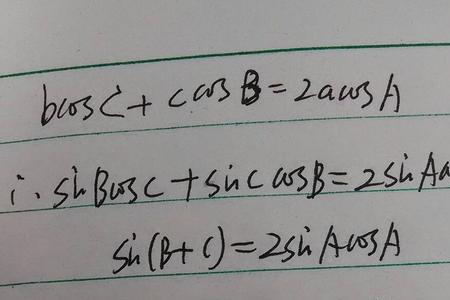 bcosC + c cosB = 2acosA
∴ sinBcosC + sinC cosB = 2sinA
sin(B+C) = 2sinAcosA